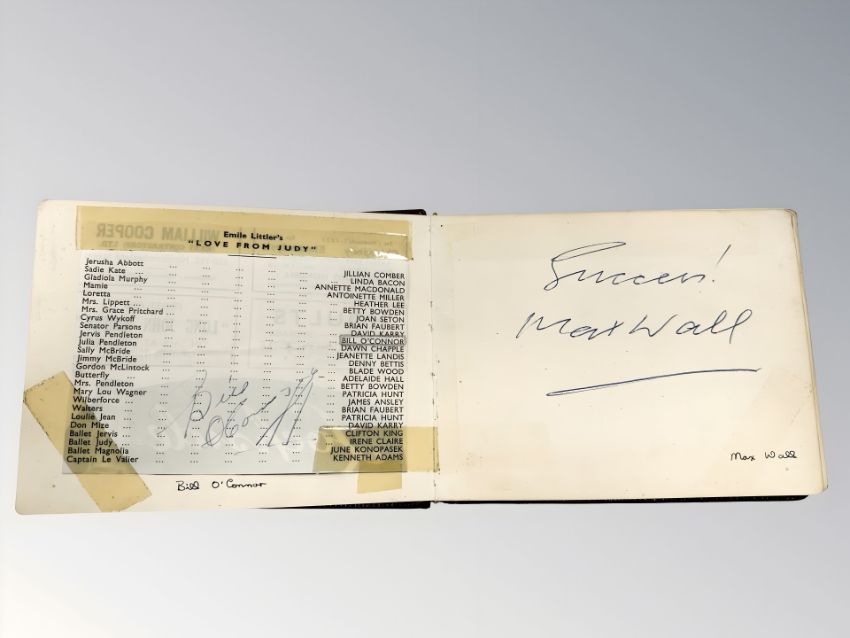 Emile Littler's
"LOVE FROM JUDY"
Jerusha Abbott ... ... ... ... ... JILLIAN COMBER
Sadie Kate ... ... ... ... ... ... LINDA BACON
Gladiola Murphy ... ... ... ... ... ANNETTE MACDONALD
Mamie ... ... ... ... ... ... ANTOINETTE MILLER
Loretta ... ... ... ... ... ... HEATHER LEE
Mrs. Lippett ... ... ... ... ... ... BETTY BOWDEN
Mrs. Grace Pritchard ... ... ... ... ... JOAN SETON
Cyrus Wykoff ... ... ... ... ... BRIAN FAUBERT
Senator Parsons ... ... ... ... ... DAVID KARRY
Jervis Pendleton ... ... ... ... ... BILL O'CONNOR
Julia Pendleton ... ... ... ... ... DAWN CHAPPLE
Sally McBride ... ... ... ... ... JEANETTE LANDIS
Jimmy McBride ... ... ... ... ... DENNY BETTIS
Gordon McLintock ... ... ... ... ... BLADE WOOD
Butterfly ... ... ... ... ... ... ADELAIDE HALL
Mrs. Pendleton ... ... ... ... ... BETTY BOWDEN
Mary Lou Wagner ... ... ... ... ... PATRICIA HUNT
Wilberforce ... ... ... ... ... JAMES ANSLEY
Waiters ... ... ... ... ... ... BRIAN FAUBERT
Loulie Jean ... ... ... ... ... ... PATRICIA HUNT
Don Mize ... ... ... ... ... ... DAVID KARRY
Ballet Jervis ... ... ... ... ... ... CLIFTON KING
Ballet Judy ... ... ... ... ... ... IRENE CLAIRE
Ballet Magnolia ... ... ... ... ... JUNE KONOPASEK
Captain Le Valier ... ... ... ... ... KENNETH ADAMS
Bill O'Connor
Bill O'Connor
Success!
Max Wall
Max Wall